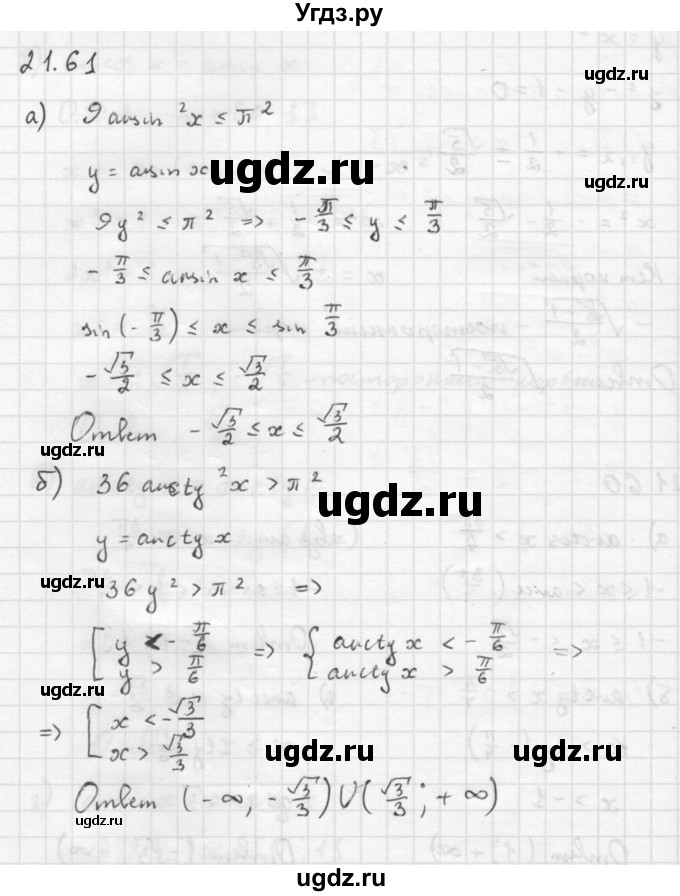 Угдз.ру
21.61
ugdz.ru
а) 9 arcsin ²x ≤ π ²
ugdz.ru
y = arcsin x
ugdz.ru
9y² ≤ π² => - π/3 ≤ y ≤ π/3
ugdz.ru
- π/3 ≤ arcsin x ≤ π/3
ugdz.ru
sin (- π/3) ≤ x ≤ sin π/3
- √3/2 ≤ x ≤ √3/2
ugdz.ru
Ответ - √3/2 ≤ x ≤ √3/2
ugdz.ru
б) 36 arctg ²x > π ²
ugdz.ru
y = arctg x
ugdz.ru
36 y² > π² =>
[ y < - π/6 => { arctg x < - π/6 =>
y > π/6 arctg x > π/6
ugdz.ru
=> [ x < - √3/3
x > √3/3
ugdz.ru
ugdz.ru
Ответ (- ∞; - √3/3) U (√3/3; + ∞)
ugdz.ru
ugdz.ru